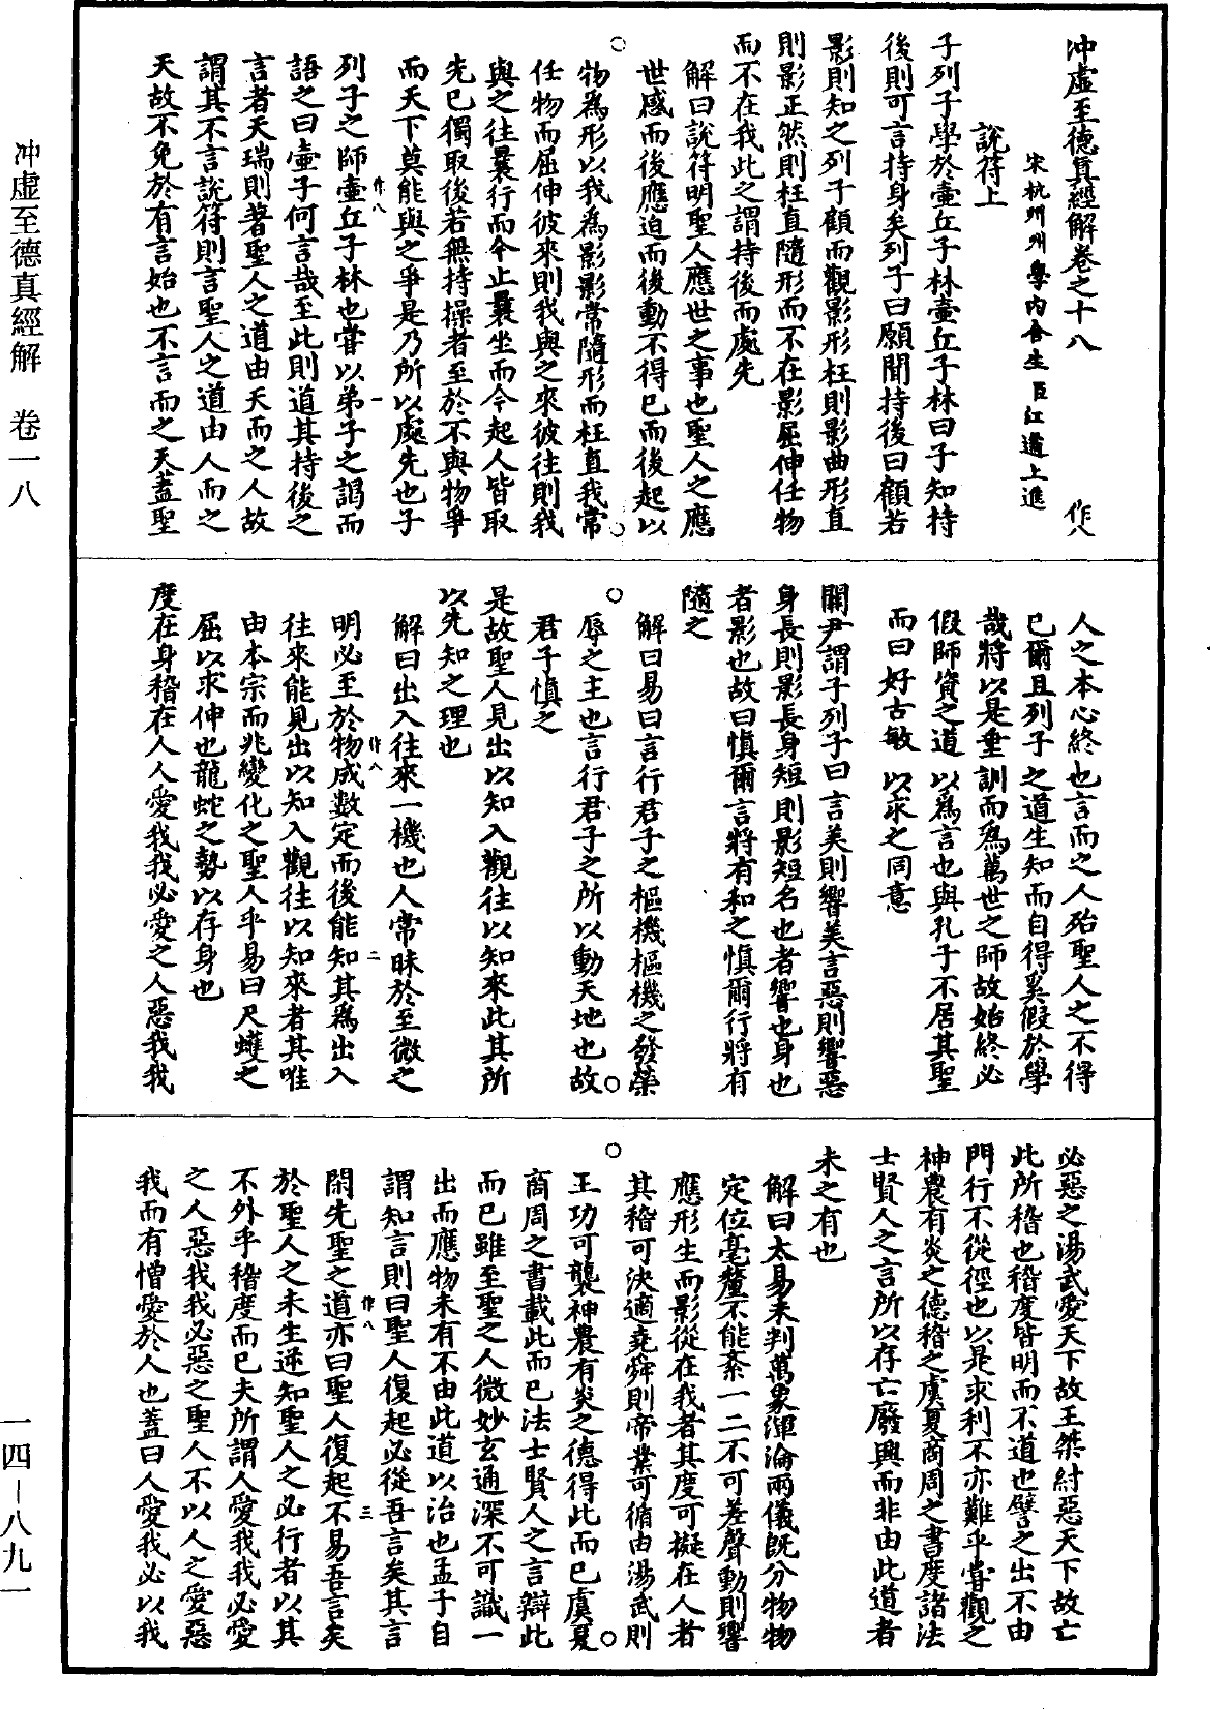 冲虛至德真經解卷之十八
作八
宋杭州州學內舍生臣江遹上進
說符上
子列子學於壺丘子林壺丘子林曰子知持
後則可言持身矣列子曰願聞持後曰顧若
影則知之列子顧而觀影形枉則影曲形直
則影正然則枉直隨形而不在影屈伸任物
而不在我此之謂持後而處先
解曰說符明聖人應世之事也聖人之應
世感而後應迫而後動不得已而後起以
物為形以我為影影常隨形而枉直我常
任物而屈伸彼來則我與之來彼往則我
與之往曩行而今止曩坐而今起人皆取
先已獨取後若無持操者至於不與物爭
而天下莫能與之爭是乃所以處先也子
列子之師壺丘子林也嘗以弟子之謁而
語之曰壺子何言哉至此則道其持後之
言者天瑞則著聖人之道由天而之人故
謂其不言說符則言聖人之道由人而之
天故不免於有言始也不言而之天蓋聖
作八
一
人之本心終也言而之人殆聖人之不得
已爾且列子之道生知而自得奚假於學
哉將以是垂訓而為萬世之師故始終必
假師資之道以為言也與孔子不居其聖
而曰好古敏以求之同意
關尹謂子列子曰言美則響美言惡則響惡
身長則影長身短則影短名也者響也身也
者影也故曰慎爾言將有和之慎爾行將有
隨之
解曰易曰言行君子之樞機樞機之發榮
辱之主也言行君子之所以動天地也故
君子慎之
是故聖人見出以知入觀往以知來此其所
以先知之理也
解曰出入往來一機也人常昧於至微之
明必至於物成數定而後能知其為出入
往來能見出以知入觀往以知來者其唯
由本宗而兆變化之聖人乎易曰尺蠖之
屈以求伸也龍蛇之勢以存身也
度在身稽在人人愛我我必愛之人惡我我
作八
二
必惡之湯武愛天下故王桀紂惡天下故亡
此所稽也稽度皆明而不道也譬之出不由
門行不從徑也以是求利不亦難乎嘗觀之
神農有炎之德稽之虞夏商周之書度諸法
士賢人之言所以存亡廢興而非由此道者
未之有也
解曰太易未判萬象渾淪兩儀既分物物
定位毫釐不能紊一二不可差聲動則響
應形生而影從在我者其度可擬在人者
其稽可決適堯舜則帝業可循由湯武則
王功可襲神農有炎之德得此而已虞夏
商周之書載此而已法士賢人之言辯此
而已雖至聖之人微妙玄通深不可識一
出而應物未有不由此道以治也孟子自
謂知言則曰聖人復起必從吾言矣其言
閑先聖之道亦曰聖人復起不易吾言矣
於聖人之未生逆知聖人之必行者以其
不外乎稽度而已夫所謂人愛我我必愛
之人惡我我必惡之聖人不以人之愛惡
我而有憎愛於人也蓋曰人愛我必以我
作八
三
冲虛至德真經解 卷一八
一四—八九一